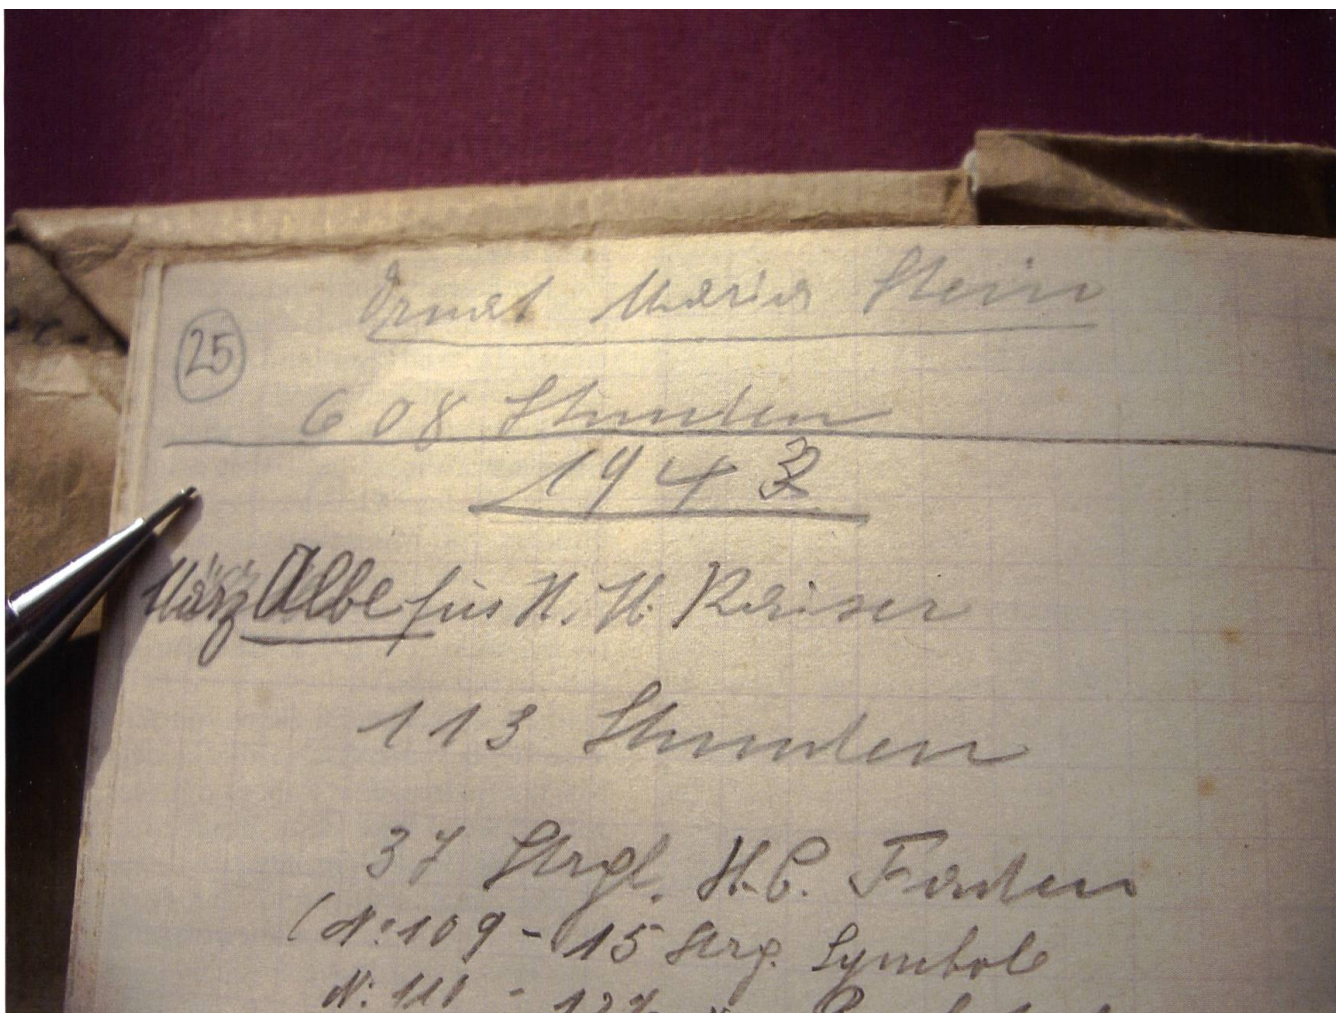 Ernst Maria Stein
25
608 Stunden
1943
März Albe für H. H. Kaiser
113 Stunden
37 Strgl. H.C. Faden
(N: 109 - 15 Strg. Symbole
N: 110 -